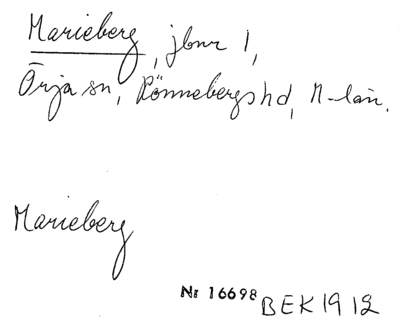 Marieberg, jbnr 1,
Örja sn, Rönnebergs hd, M-län.
Marieberg
Nr 16698 BEK 1912